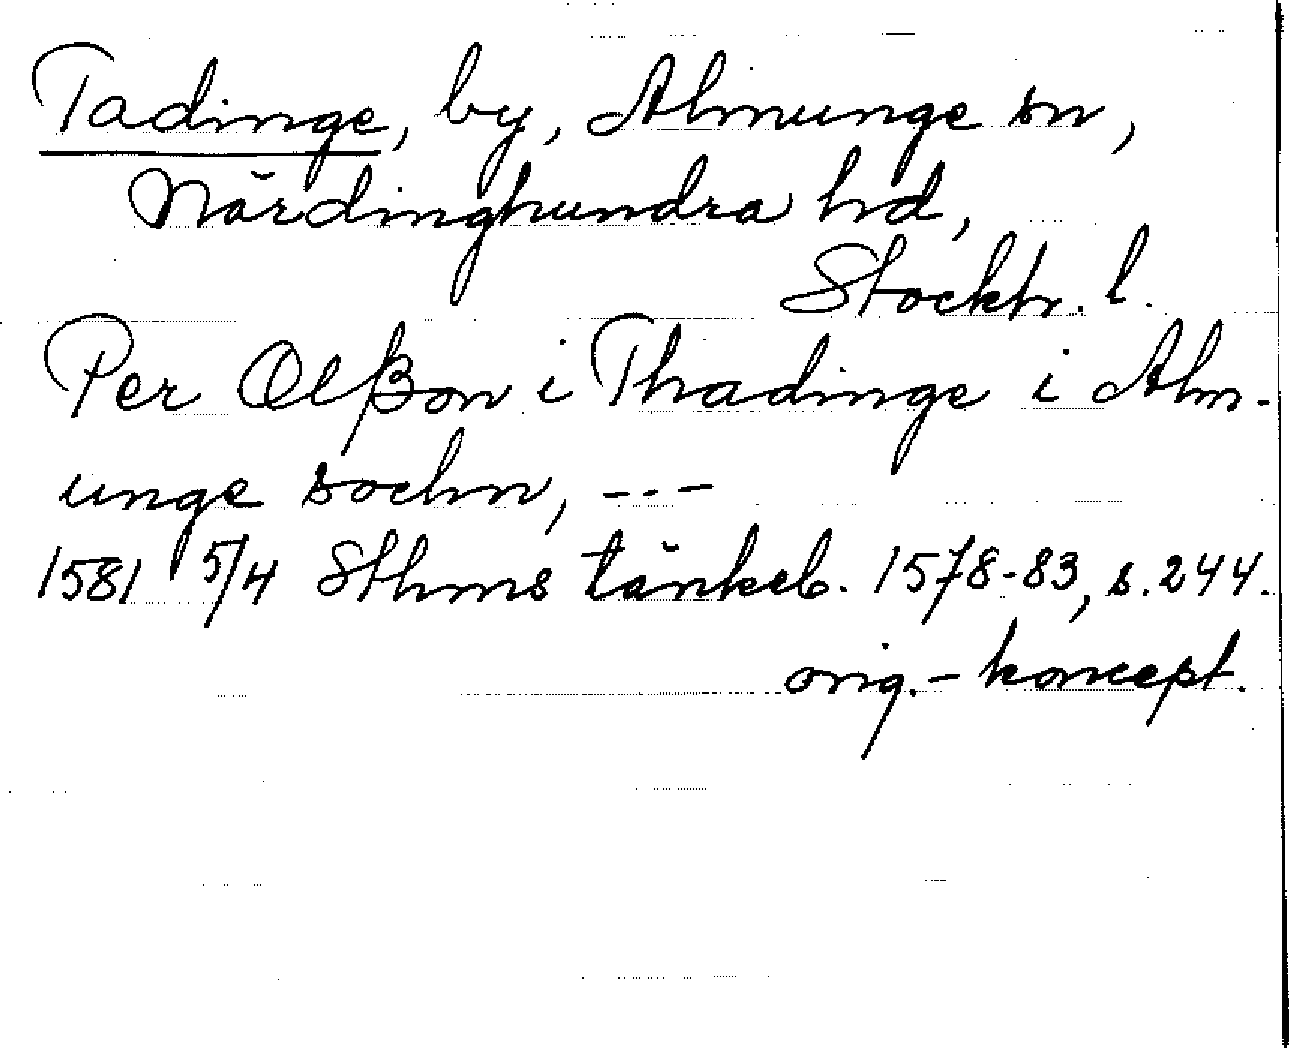 Tadinge, by, Almunge sn,
Närdinghundra hd,
Stockh. l.
Per Olßon i Thadinge i Alm-
unge sochn, ---
1581 5/4 Sthms tänkeb. 1578-83, s. 244.
orig.- koncept.